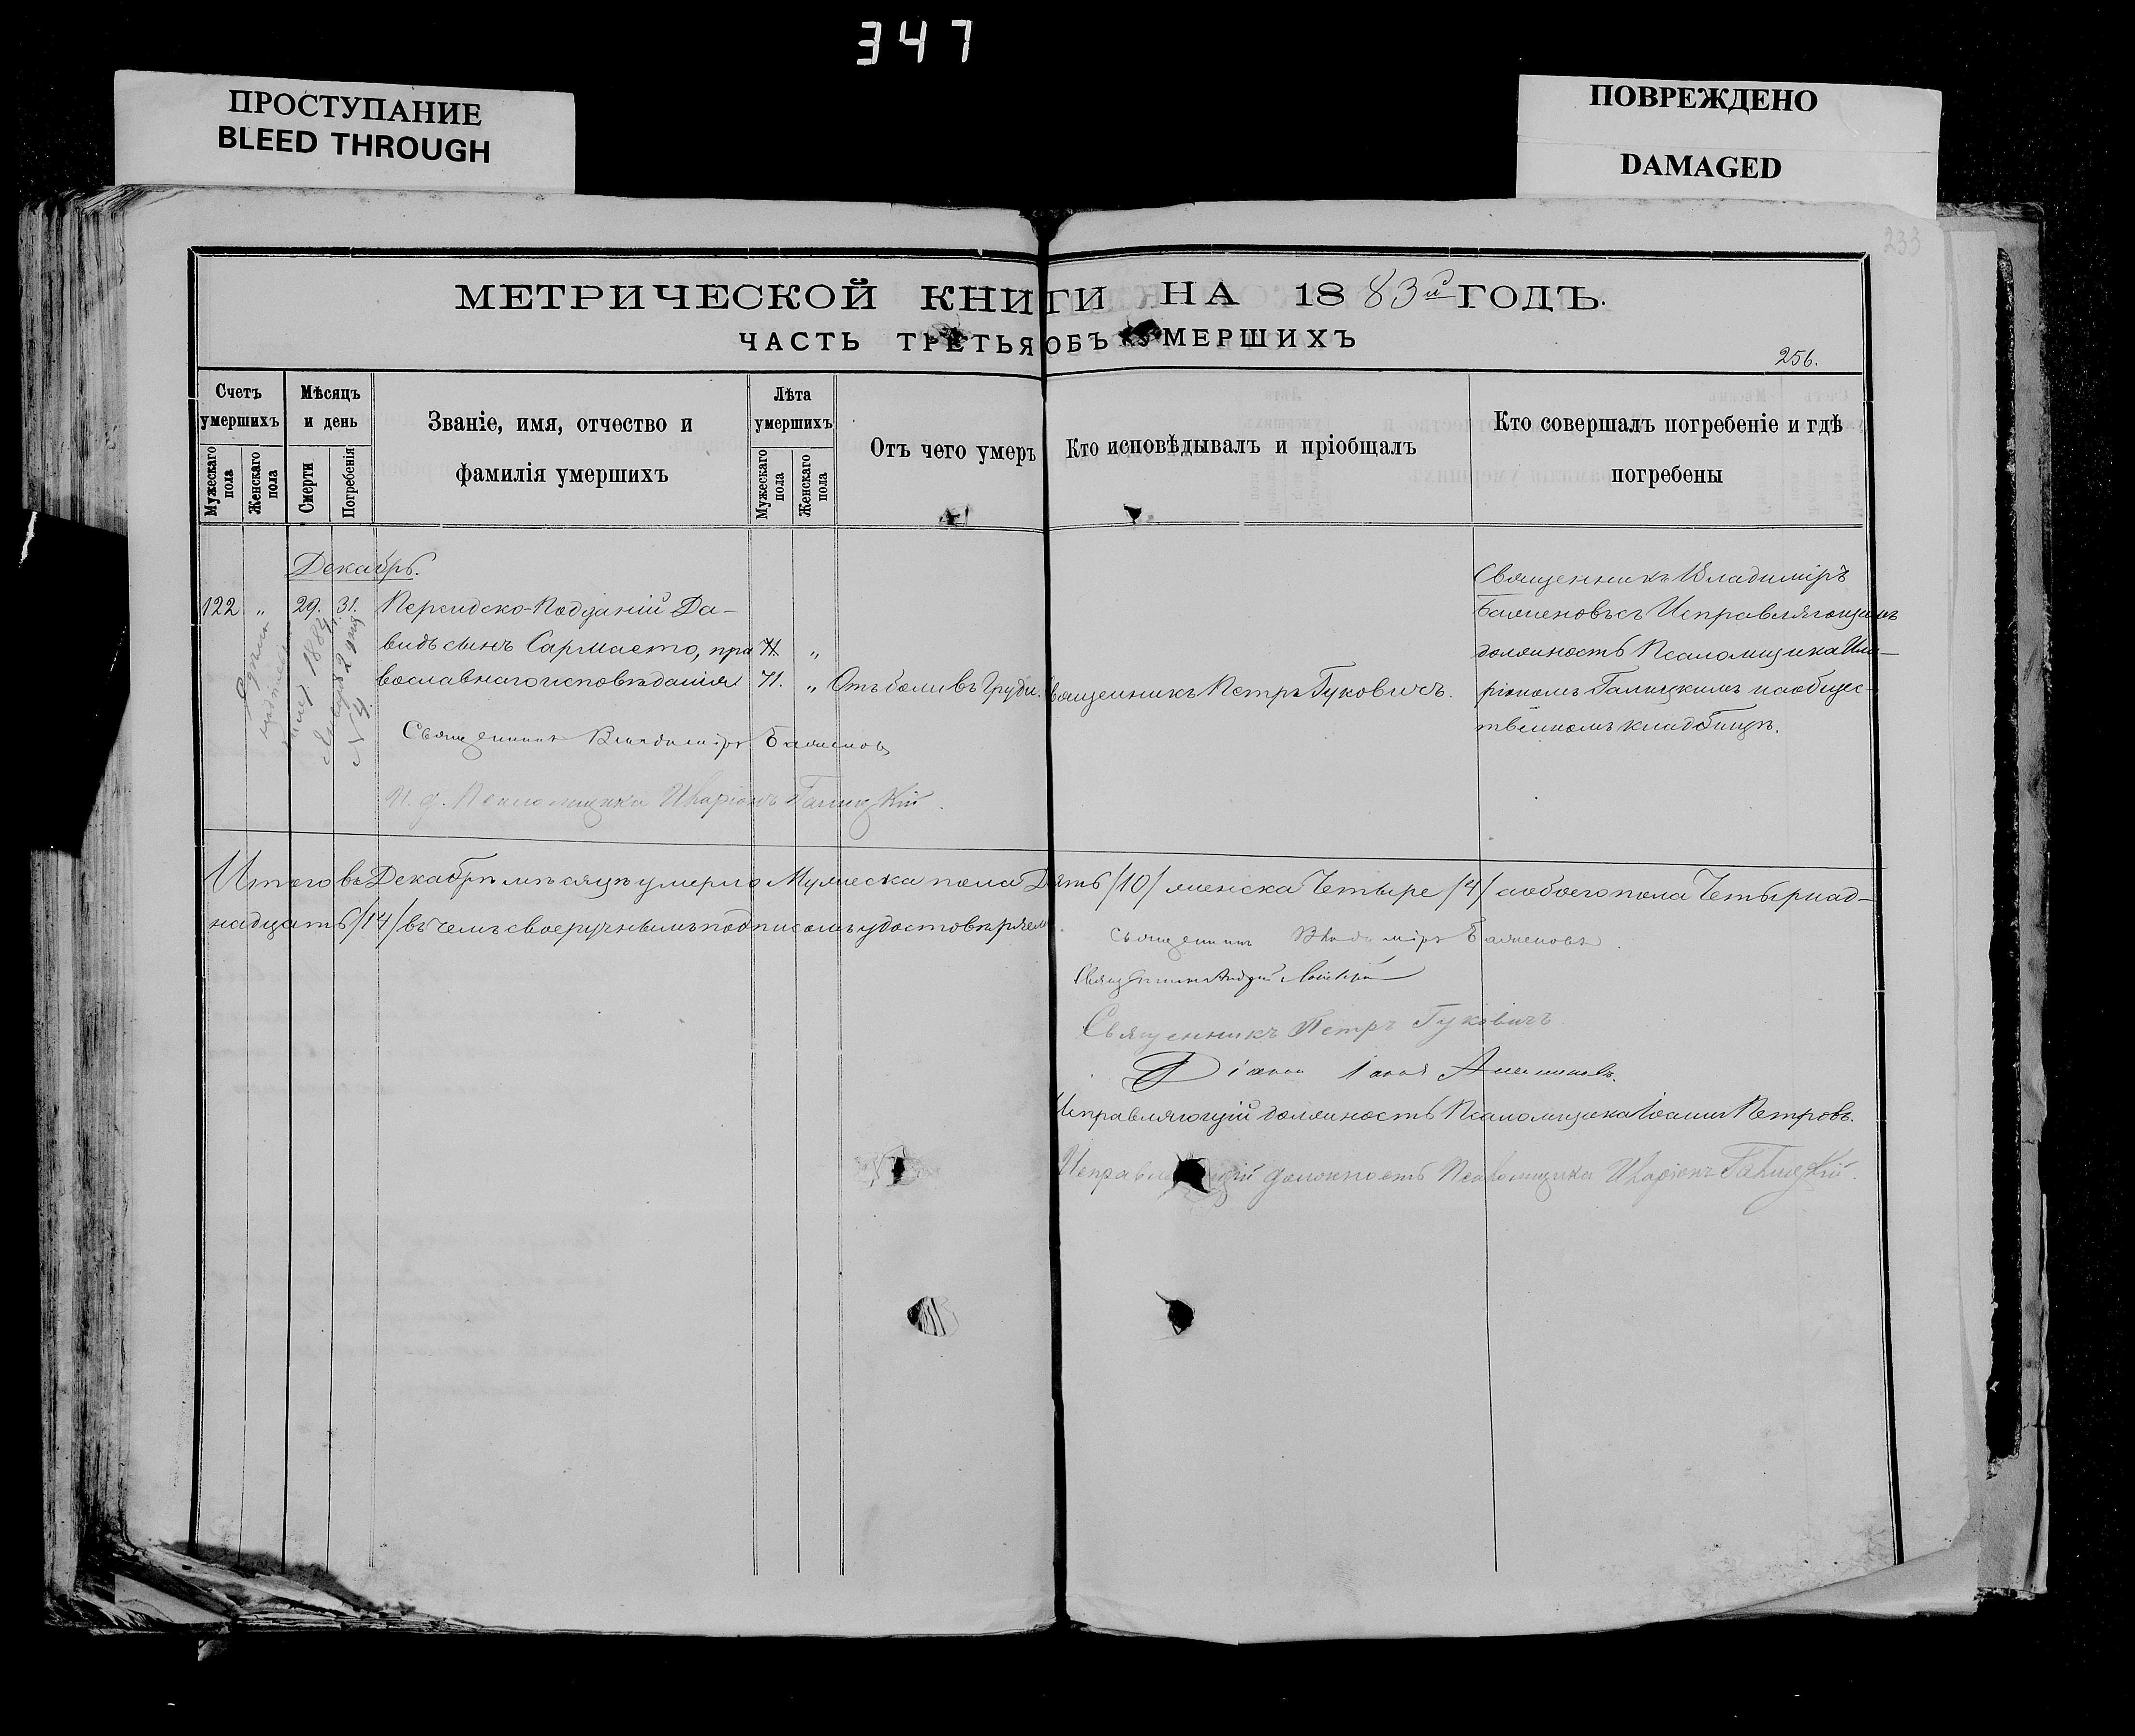 347
ПРОСТУПАНИЕ
BLEED THROUGH
ПОВРЕЖДЕНО
DAMAGED
233
МЕТРИЧЕСКОЙ КНИГИ НА 1883й ГОДЪ.
ЧАСТЬ ТРЕТЬЯ ОБЪ УМЕРШИХЪ
256.
Счетъ умершихъ
Мужескаго пола
Женскаго пола
Мѣсяцъ и день
Смерти
Погребенія
Званіе, имя, отчество и
фамилія умершихъ
Лѣта умершихъ
Мужескаго пола
Женскаго пола
Отъ чего умеръ
Кто исповѣдывалъ и пріобщалъ
Кто совершалъ погребеніе и гдѣ
погребены
Декабрь.
122 „ 29. 31. Персидско-Подданій Да-
видъ сынъ Сармаето, пра 71 „
вославнаго исповѣданія 71. „ Отъ боли въ груди. Священникъ Петръ Гуковичъ.
Священникъ Владиміръ
Баженовъ съ Исправляющимъ
должность Псаломщика Ила-
ріономъ Галицкимъ на общес-
твенномъ кладбищѣ.
1884
Января 2 дня
№ 4.
Священникъ Владиміръ Баженовъ
И. д. Псаломщика Иларіонъ Галицкій.
Итого въ Декабрѣ мѣсяцѣ умерло Мужеска пола Десять /10/ женска Четыре /4/ а обоего пола Четырнад-
надцать /14/ въ чемъ своеручнымъ подписомъ удостовѣряемъ
Священникъ Владиміръ Баженовъ.
Священникъ Андрей
Священникъ Петръ Гуковичъ
Діаконъ Іаковъ
Исправляющій должность Псаломщика Іоаннъ Петровъ.
Исправляющій должность Псаломщика Иларіонъ Галицкій.